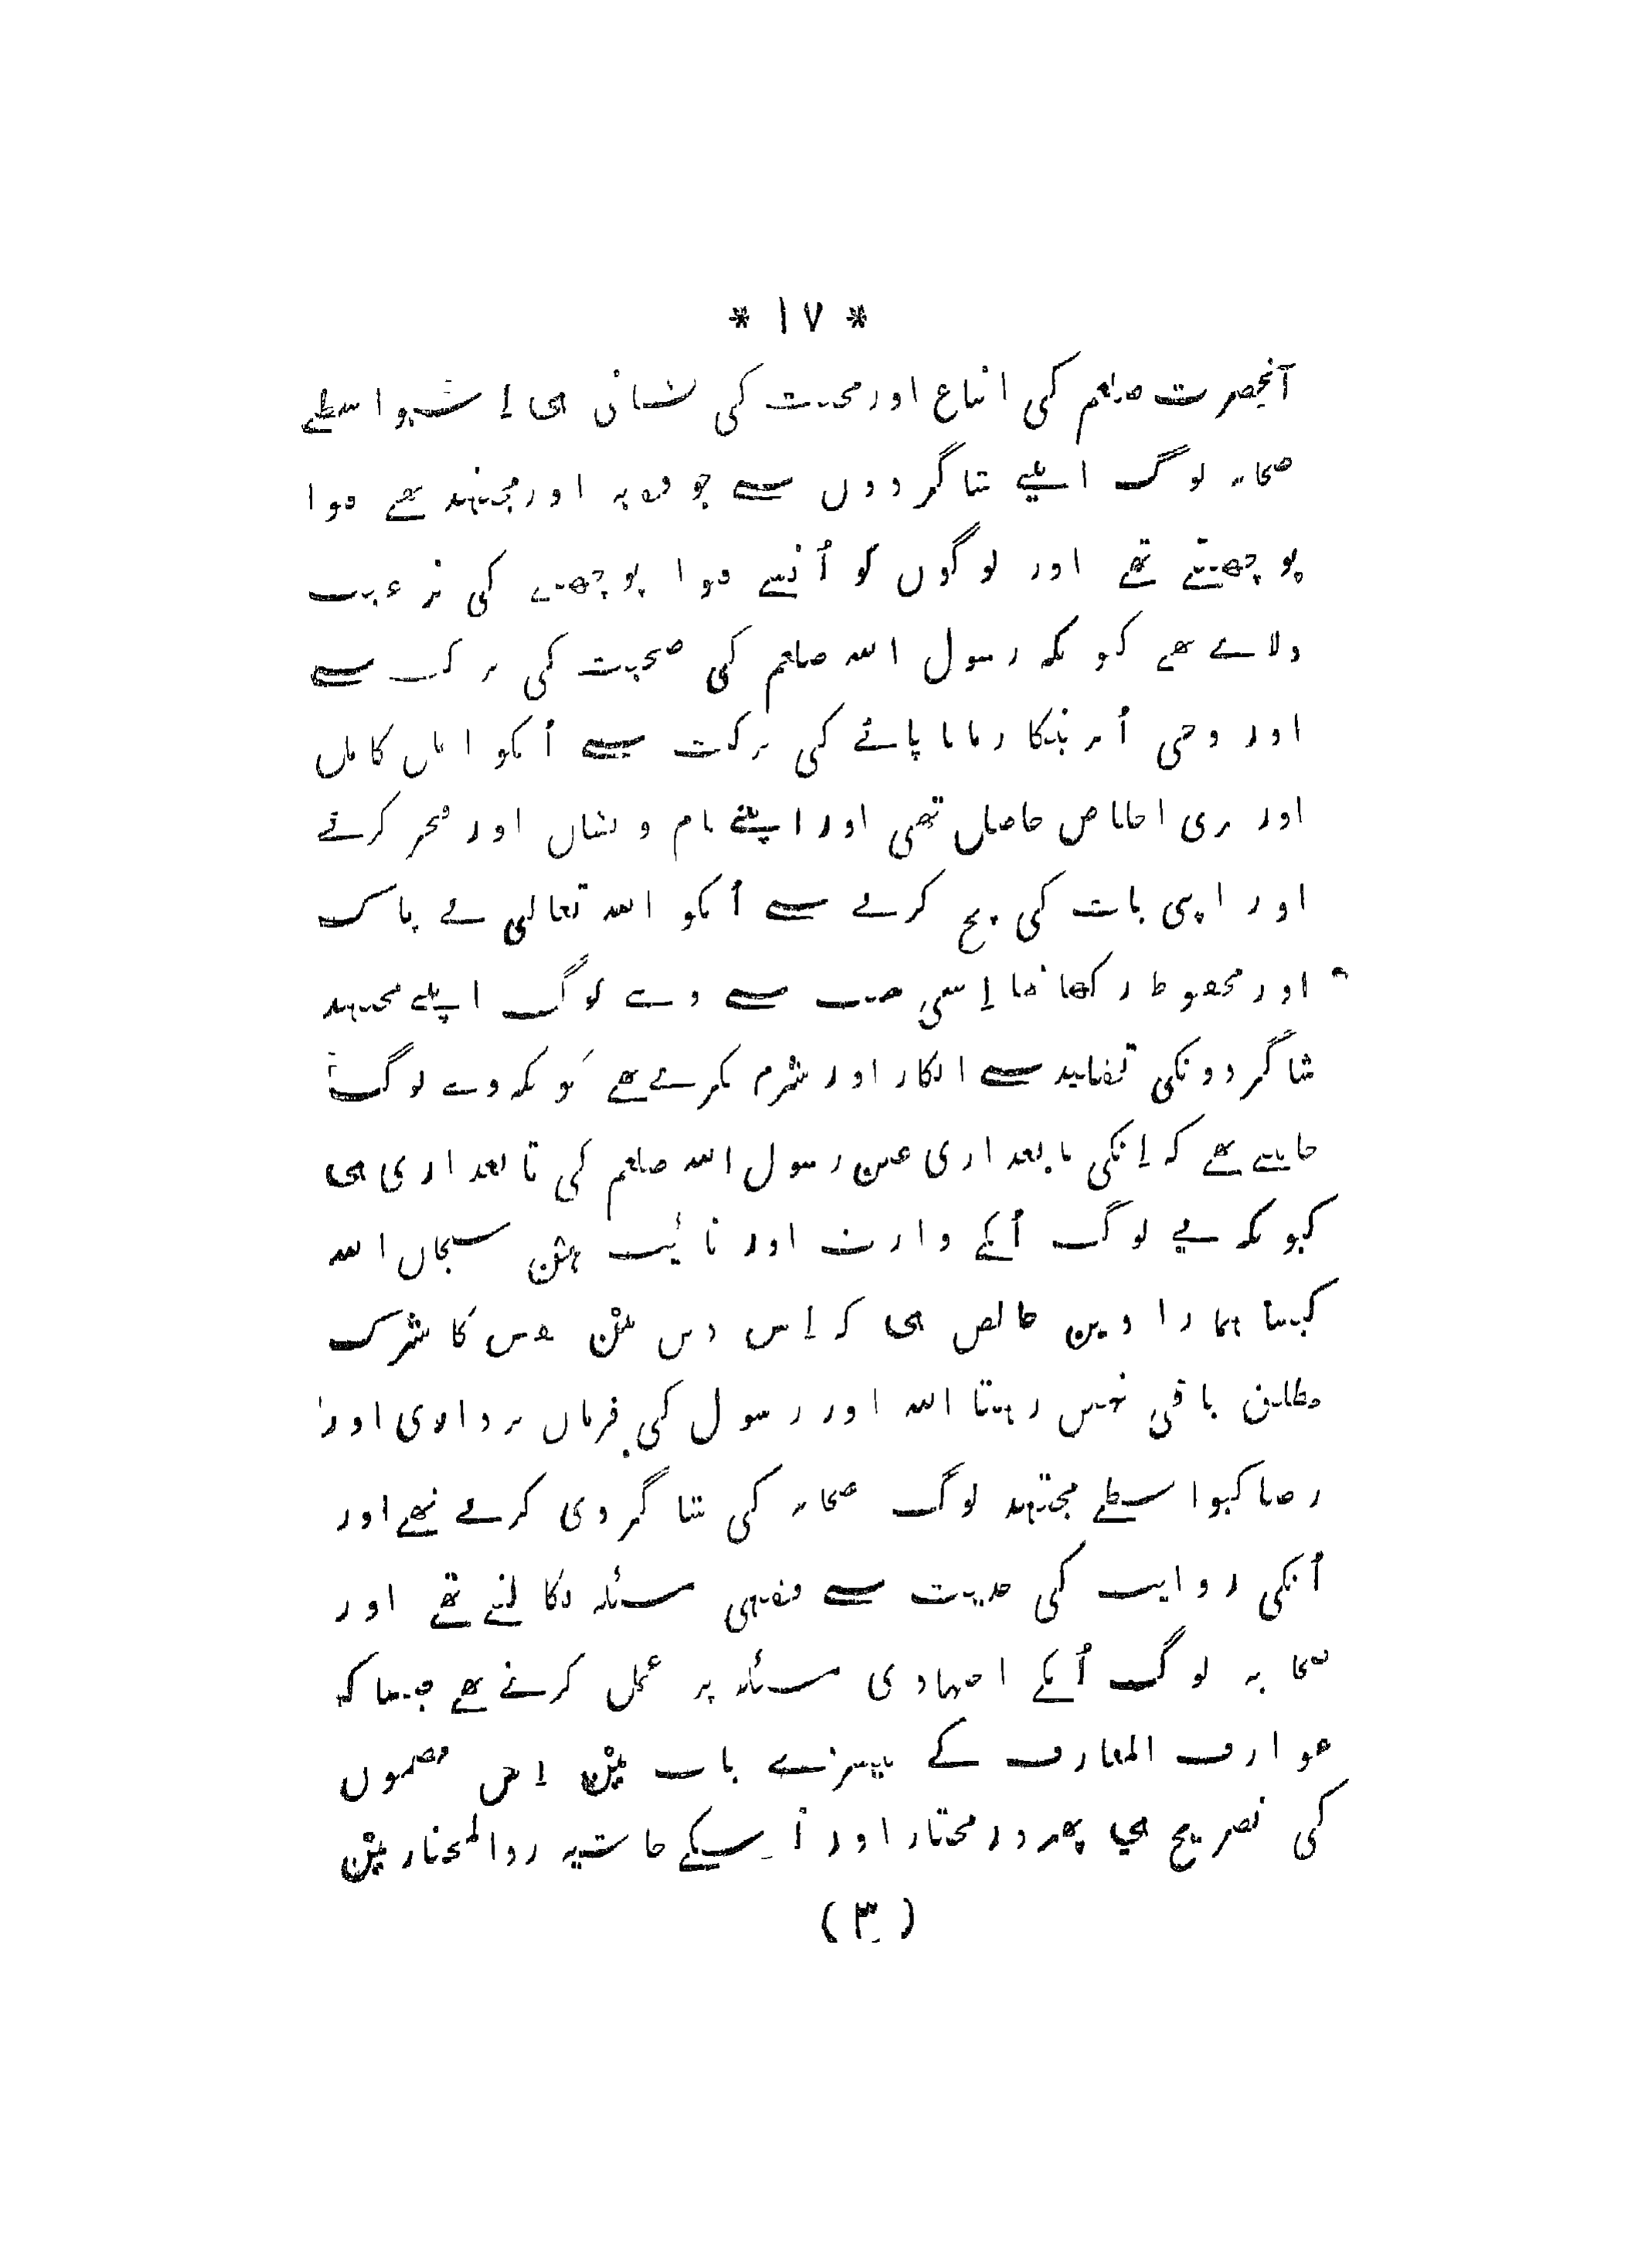 * ١٧ *
آنحضرت صلعم کی اتباع اور محبت کی نشانی ہی اِسیواسطے
صحابہ لوگ اپنے شاگردوں سے جو فقیہ اور مجتہد تھے فتوا
پوچھتے تھے اور لوگوں کو اُنسے فتوا پوچھنے کی ترغیب
دلاتے تھے کیونکہ رسول اللہ صلعم کی صحبت کی برکت سے
اور وحی اُترنیکا زمانا پانے کی برکت سے اُنکو ایمان کامل
اور بری اخلاص حاصل تھی اور اپنے نام و نشان اور فخر کرنے
اور اپنی بات کی پچ کرنے سے اُنکو اللہ تعالی نے پاک
اور محفوظ رکھا تھا اِسی سبب سے وے لوگ اپنے مجتہد
شاگردونکی تقلید سے انکار اور شرم نکرتے تھے کیونکہ وے لوگ
جانتے تھے کہ اِنکی تابعداری عین رسول اللہ صلعم کی تابعداری ہی
کیونکہ یے لوگ اُنکے وارث اور نائب ہین سبحان اللہ
کیسا ہمارا دین خالص ہی کہ اِس دین مین نفس کا شرک
مطلق باقی نہیں رہتا اللہ اور رسول کی فرمان برداری اور
رضا کیواسطے مجتہد لوگ صحابہ کی شاگردی کرتے تھے اور
اُنکی روایت کی حدیث سے فقہی مسئلہ نکالتے تھے اور
صحابہ لوگ اُنکے اجتہادی مسئلہ پر عمل کرتے تھے جیساکہ
عوارف المعارف کے تیسرے باب مین اِس مضمون
کی تصریح ہی پھر در مختار اور اُسیکے حاشیہ ردالمحتار مین
( ٣ )